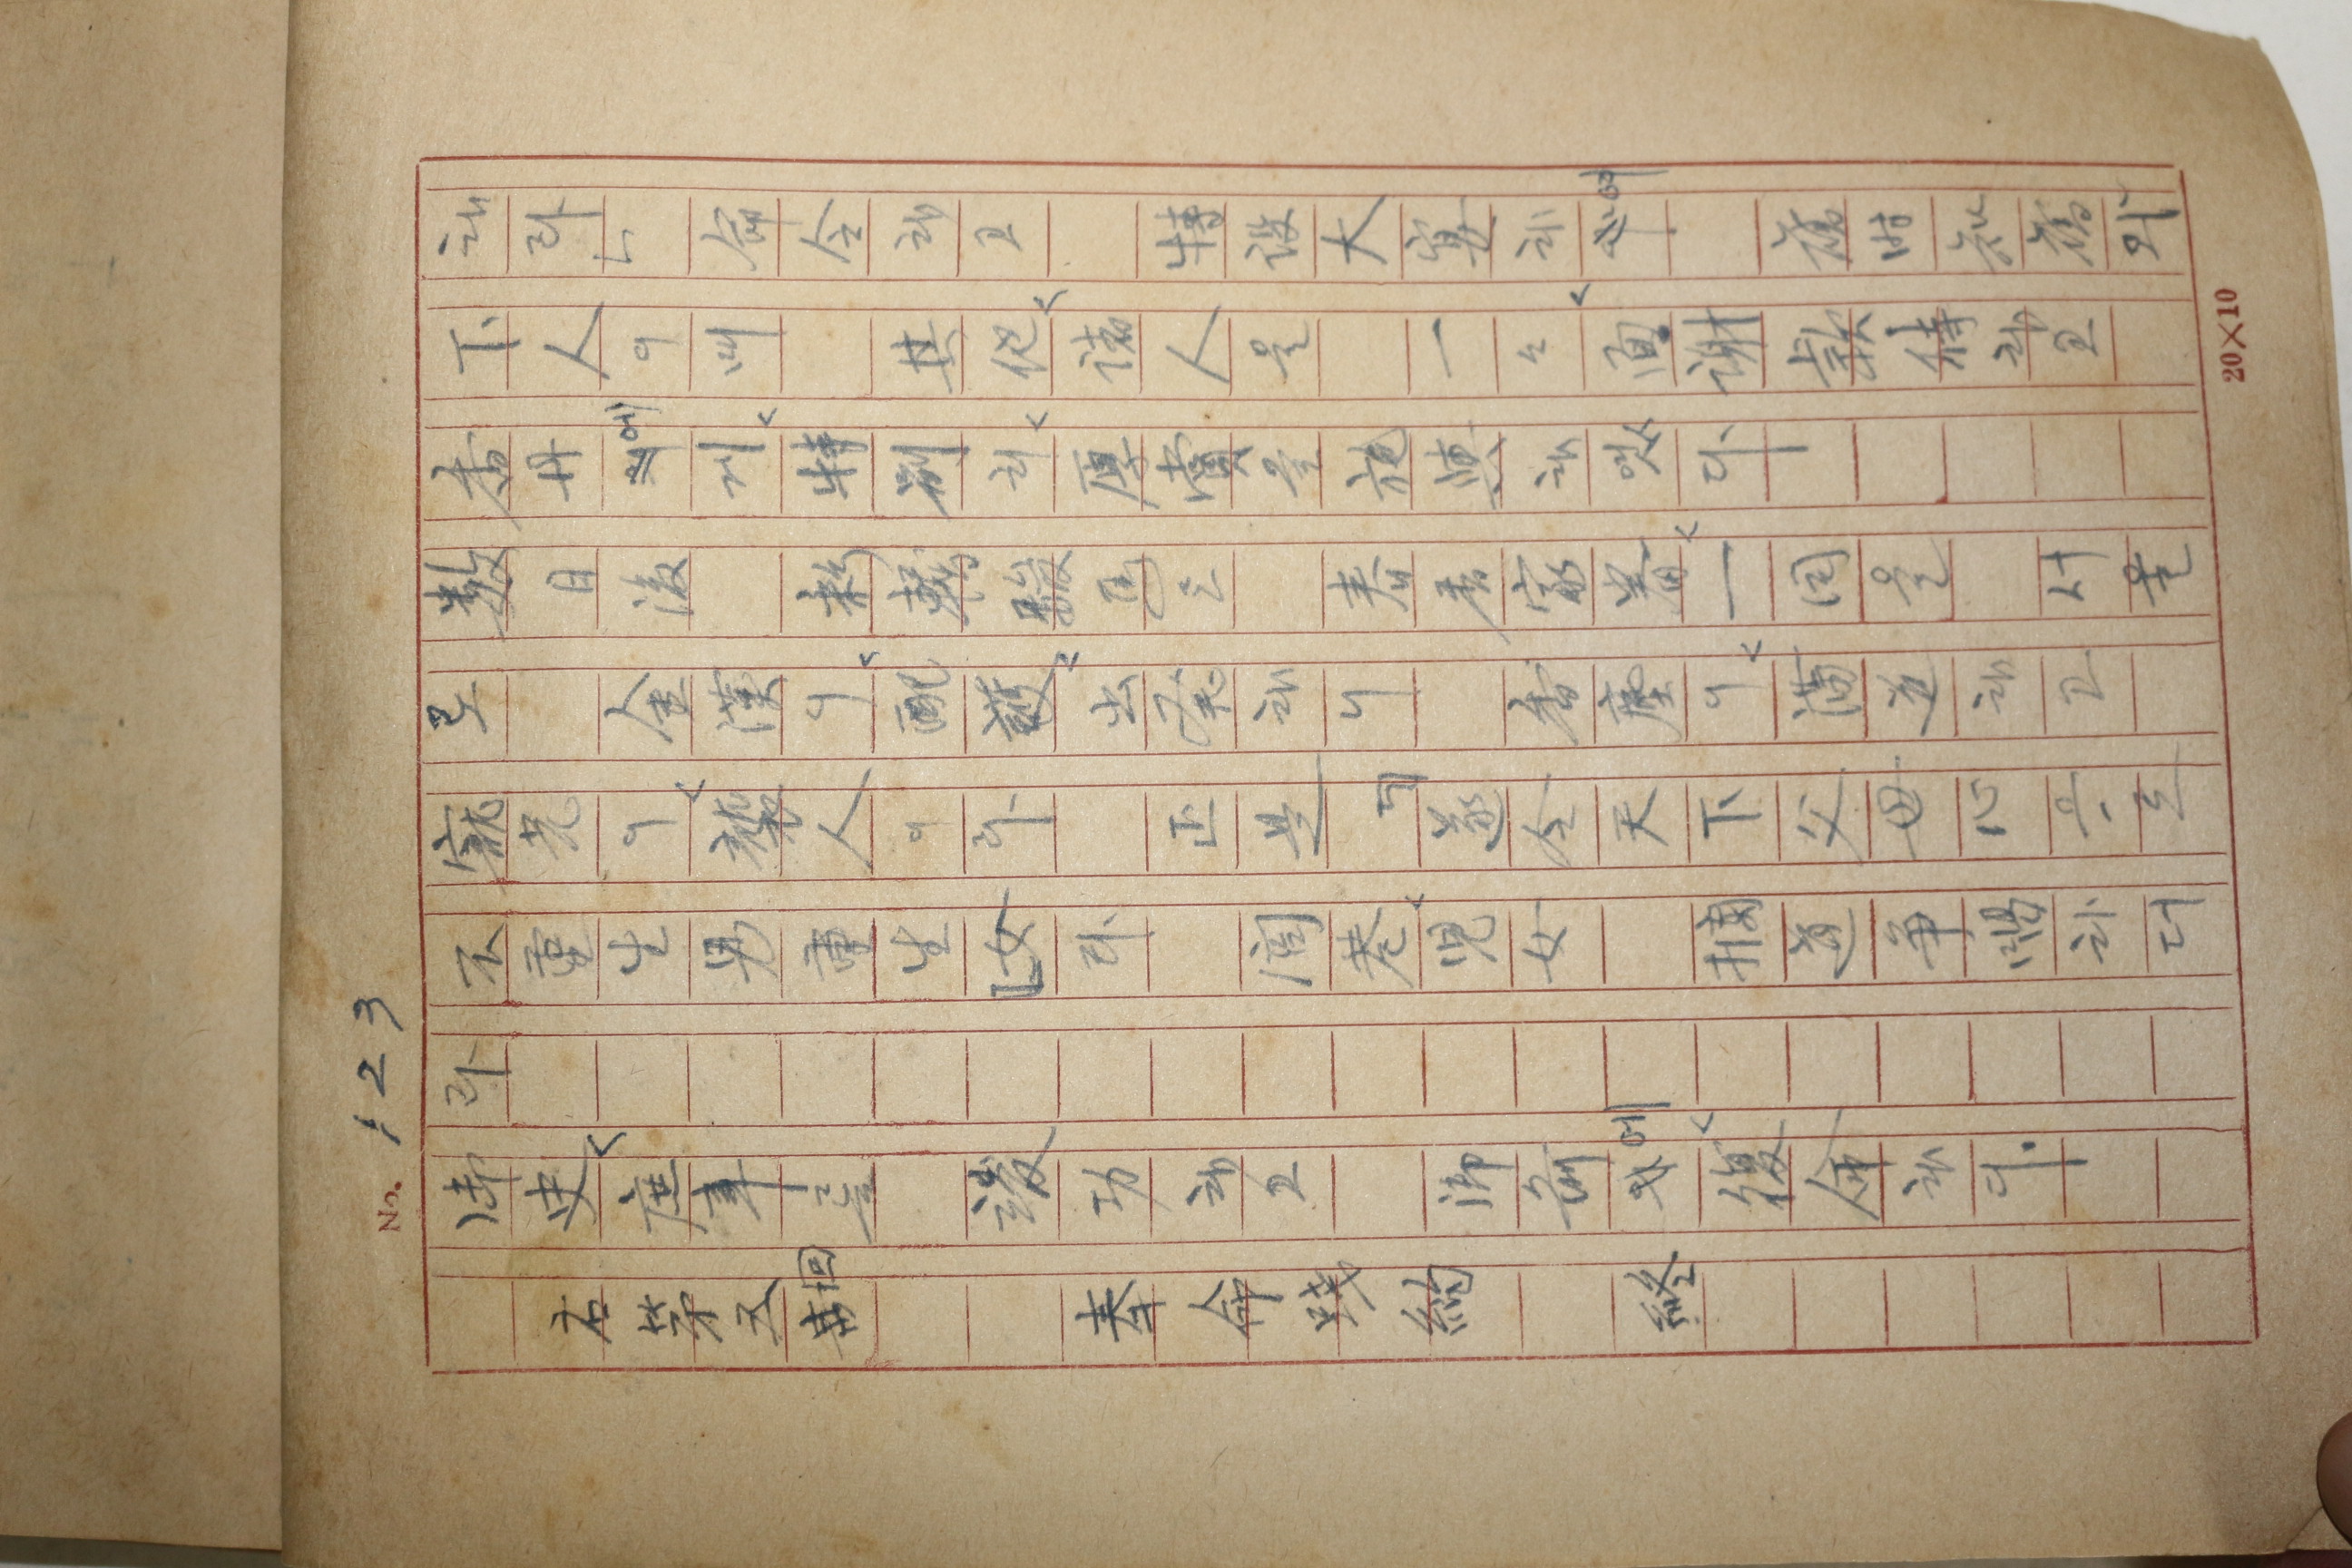 No. 123
해라」 命令하고 特設大宴하여 舊時知舊와
下人이며 其他 諸人을 一々 面謝款待하고
香丹에게 特別히 厚賞을 施與하였다
数日後 彩轎駿馬로 春香家眷 一同을 서울
로 金漢이 配護 出発하니 香塵이 満道하고
寵光이 襲人이라 正是 「遂令天下父母心으로
不重生男重生女」라 閭巷 児女 摘道争唱하더
라
御史 庶事를 竣功하고 御前에 復命하다.
右第五回 奉命踐約 終
20×10